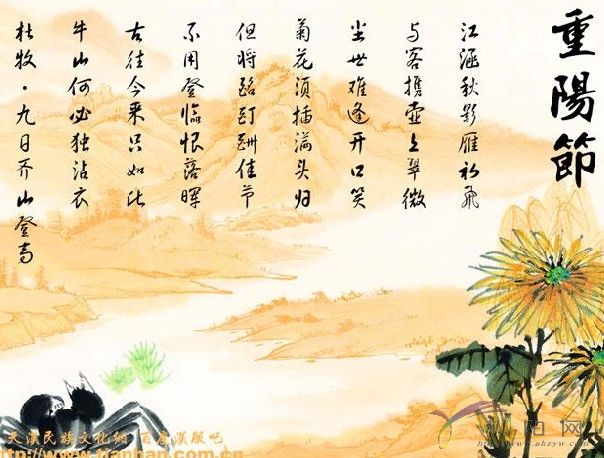 重陽節
江涵秋影雁初飞
与客携壶上翠微
尘世难逢开口笑
菊花须插满头归
但将酩酊酬佳节
不用登临恨落晖
古往今来只如此
牛山何必独沾衣
杜牧·九日齐山登高
天漢民族文化網 百度漢服吧
http://www.tianhan.com.cn